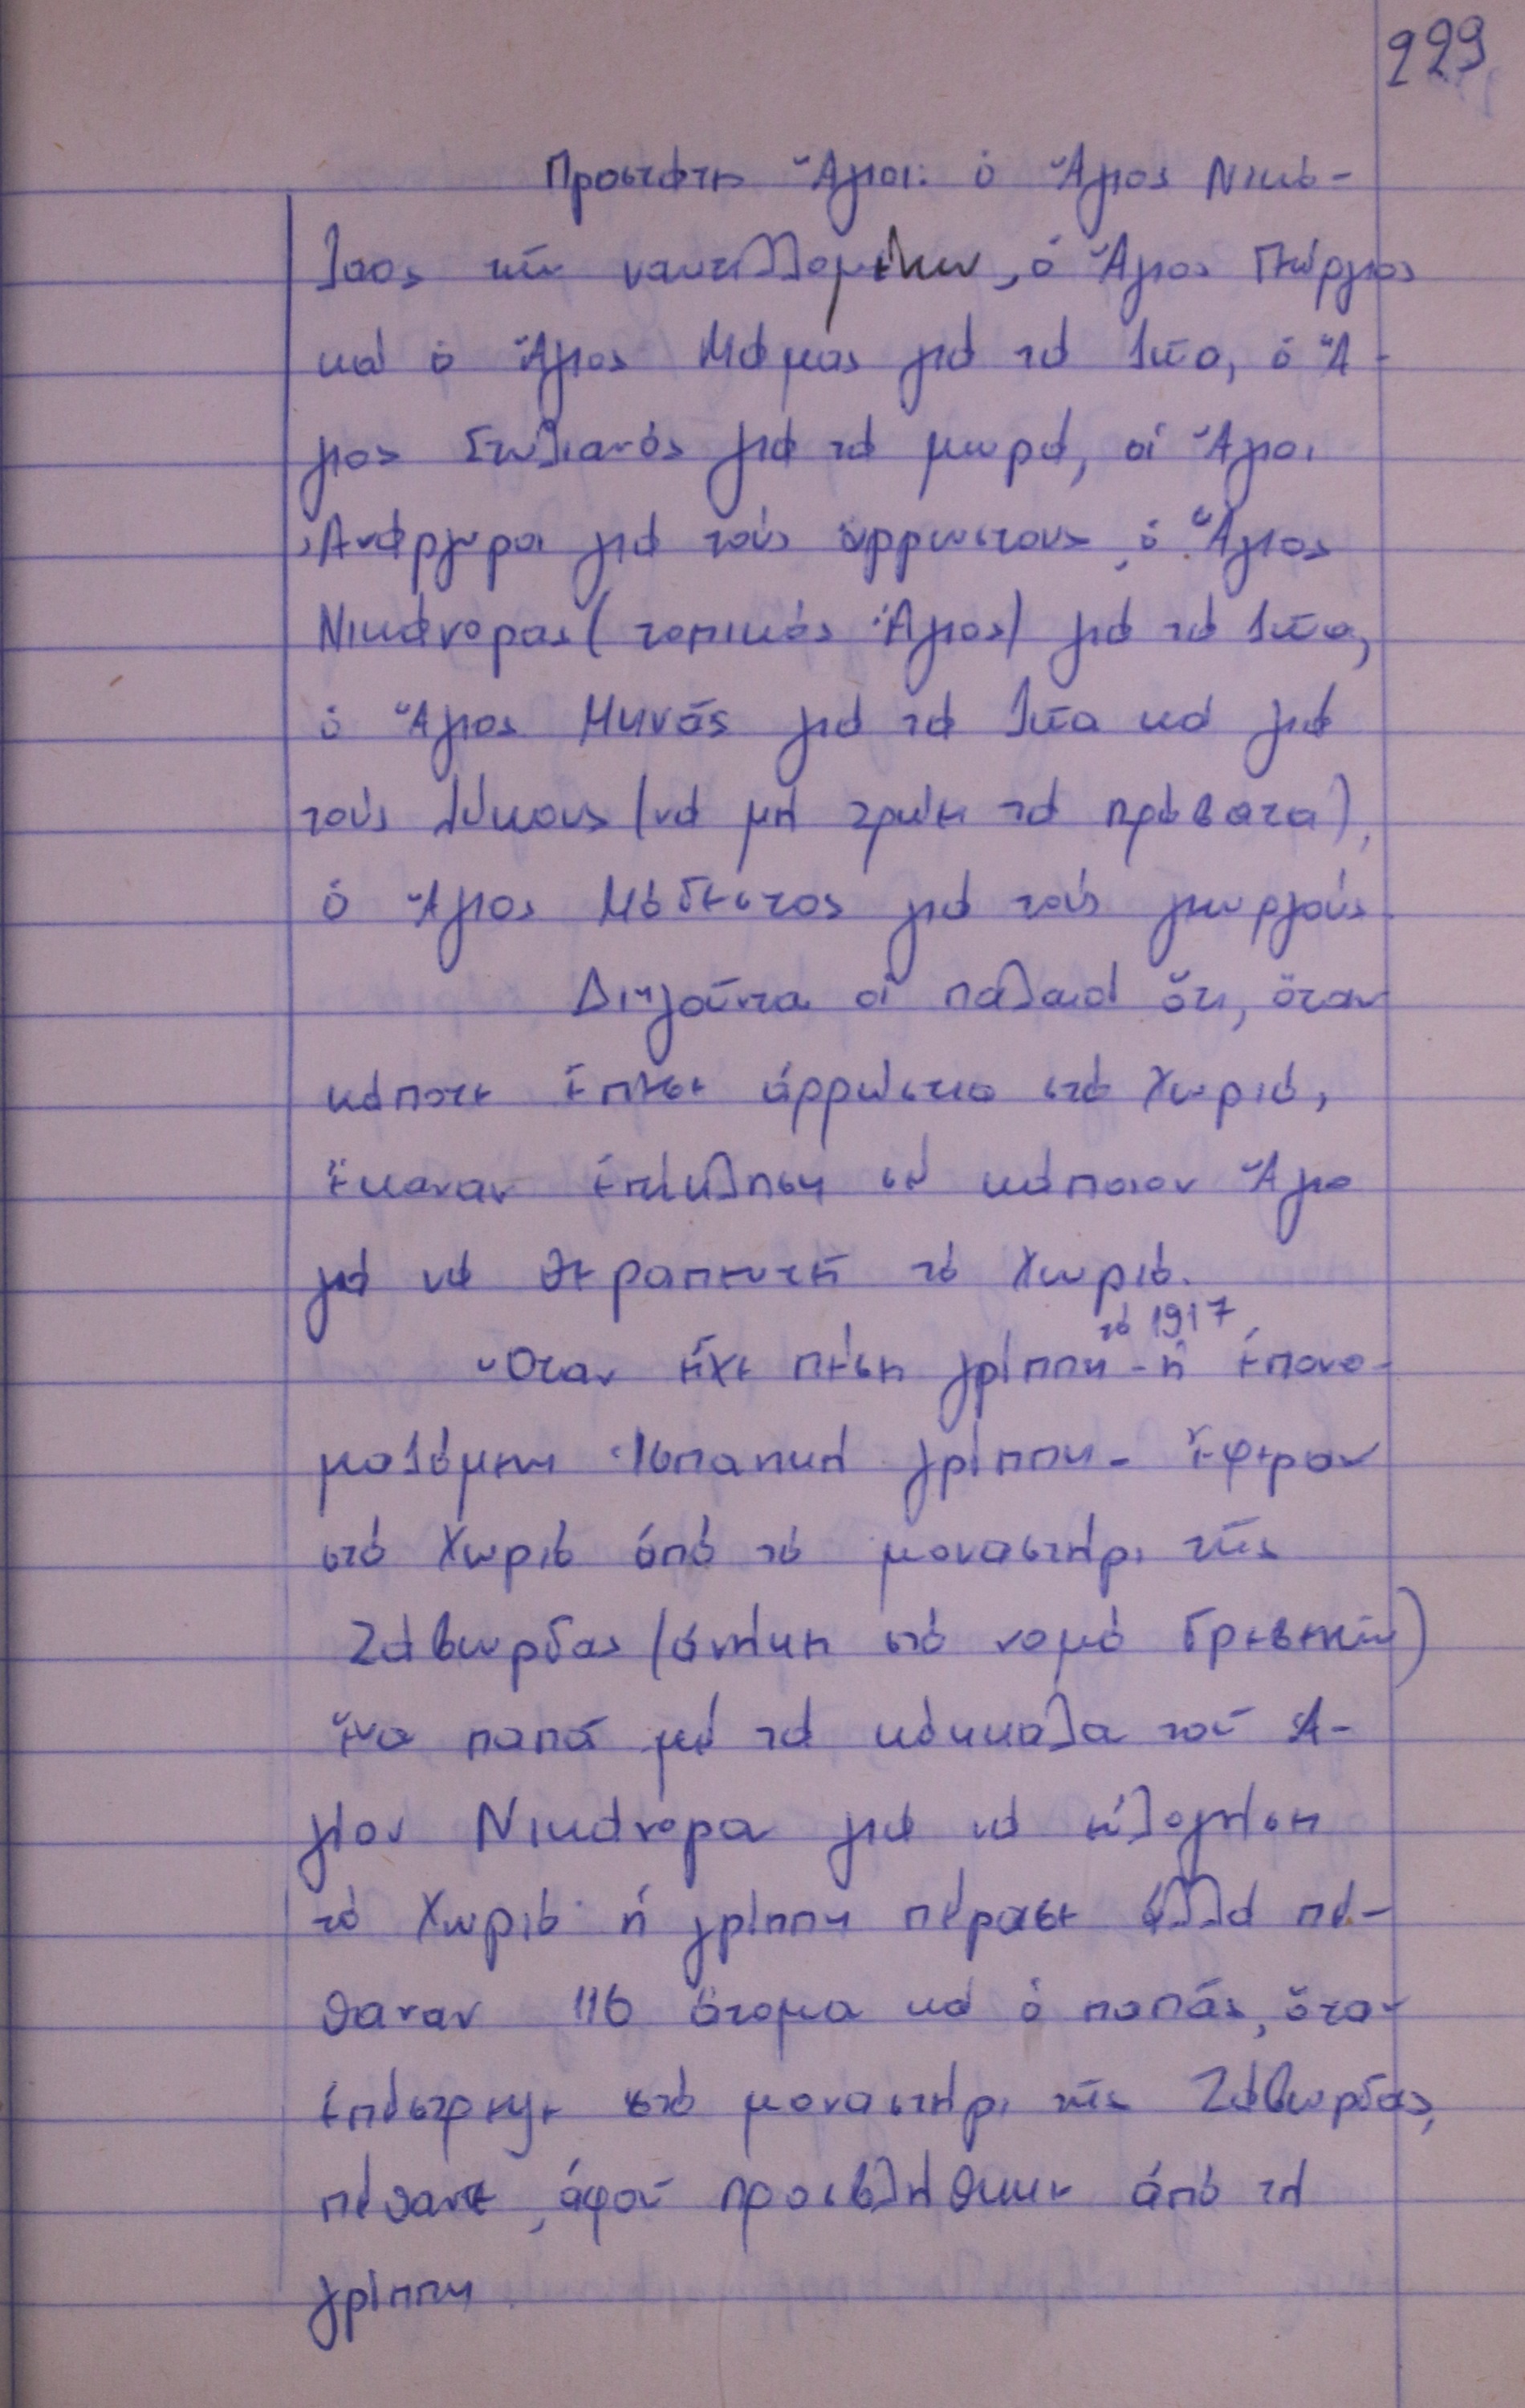 229
Προστάτες Ἅγιοι: ὁ Ἅγιος Νικό-
λαος τῶν ναυτιλλομένων, ὁ Ἅγιος Γεώργιος
καί ὁ Ἅγιος Μάμας γιά τά ζῶα, ὁ Ἅ-
γιος Στυλιανός γιά τά μωρά, οἱ Ἅγιοι
Ἀνάργυροι γιά τούς ἄρρωστους, ὁ Ἅγιος
Νικάνορας (τοπικός Ἅγιος) γιά τά ζῶα,
ὁ Ἅγιος Μηνᾶς γιά τά ζῶα καί γιά
τούς λύκους (νά μή τρῶνε τά πρόβατα),
ὁ Ἅγιος Μόδεστος γιά τούς γεωργούς.
Διηγοῦνται οἱ παλαιοί ὅτι, ὅταν
κάποτε ἔπεσε ἀρρώστια στό χωριό,
ἔκαναν ἐπίκληση σέ κάποιον Ἅγιο
γιά νά θεραπευτεῖ τό χωριό.
τό 1917
Ὅταν εἶχε πέσει γρίππη - ἡ ἐπονο-
μαζόμενη Ἱσπανική γρίππη - ἔφεραν
στό χωριό ἀπό τό μοναστήρι τῆς
Ζάβωρδας (ἀνήκει στό νομό Γρεβενῶν)
ἕνα παπά μέ τά κόκκαλα τοῦ Ἁ-
γίου Νικάνορα γιά νά εὐλογήσει
τό χωριό· ἡ γρίππη πέρασε ἀλλά πέ-
θαναν 116 ἄτομα καί ὁ παπάς, ὅταν
ἐπέστρεψε στό μοναστήρι τῆς Ζάβωρδας,
πέθανε, ἀφοῦ προσβλήθηκε ἀπό τή
γρίππη.